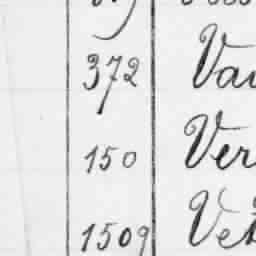 372 Va
150 Ver
1509 Ve